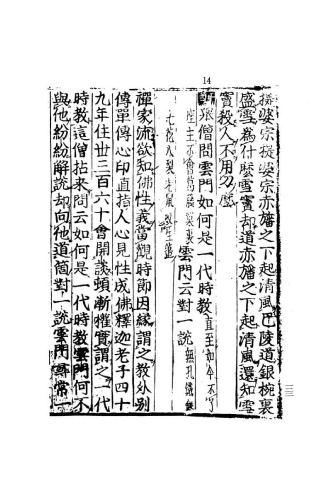 14
提婆宗提婆宗赤旛之下起清風巴陵道銀椀裏
盛雪爲什麼雪竇却道赤旛之下起清風還知雪
竇殺人不用刀麼
舉僧問雲門如何是一代時教直至如今不了
座主不會葛藤窠裏雲門云對一說無孔鐵鎚
七花八裂老鼠咬生薑
禪家流欲知佛性義當觀時節因緣謂之教外別
傳單傳心印直指人心見性成佛釋迦老子四十
九年住世三百六十會開談頓漸權實謂之一代
時教這僧拈來問云如何是一代時教雲門何不
與他紛紛解說却向他道箇對一說雲門尋常一
三三